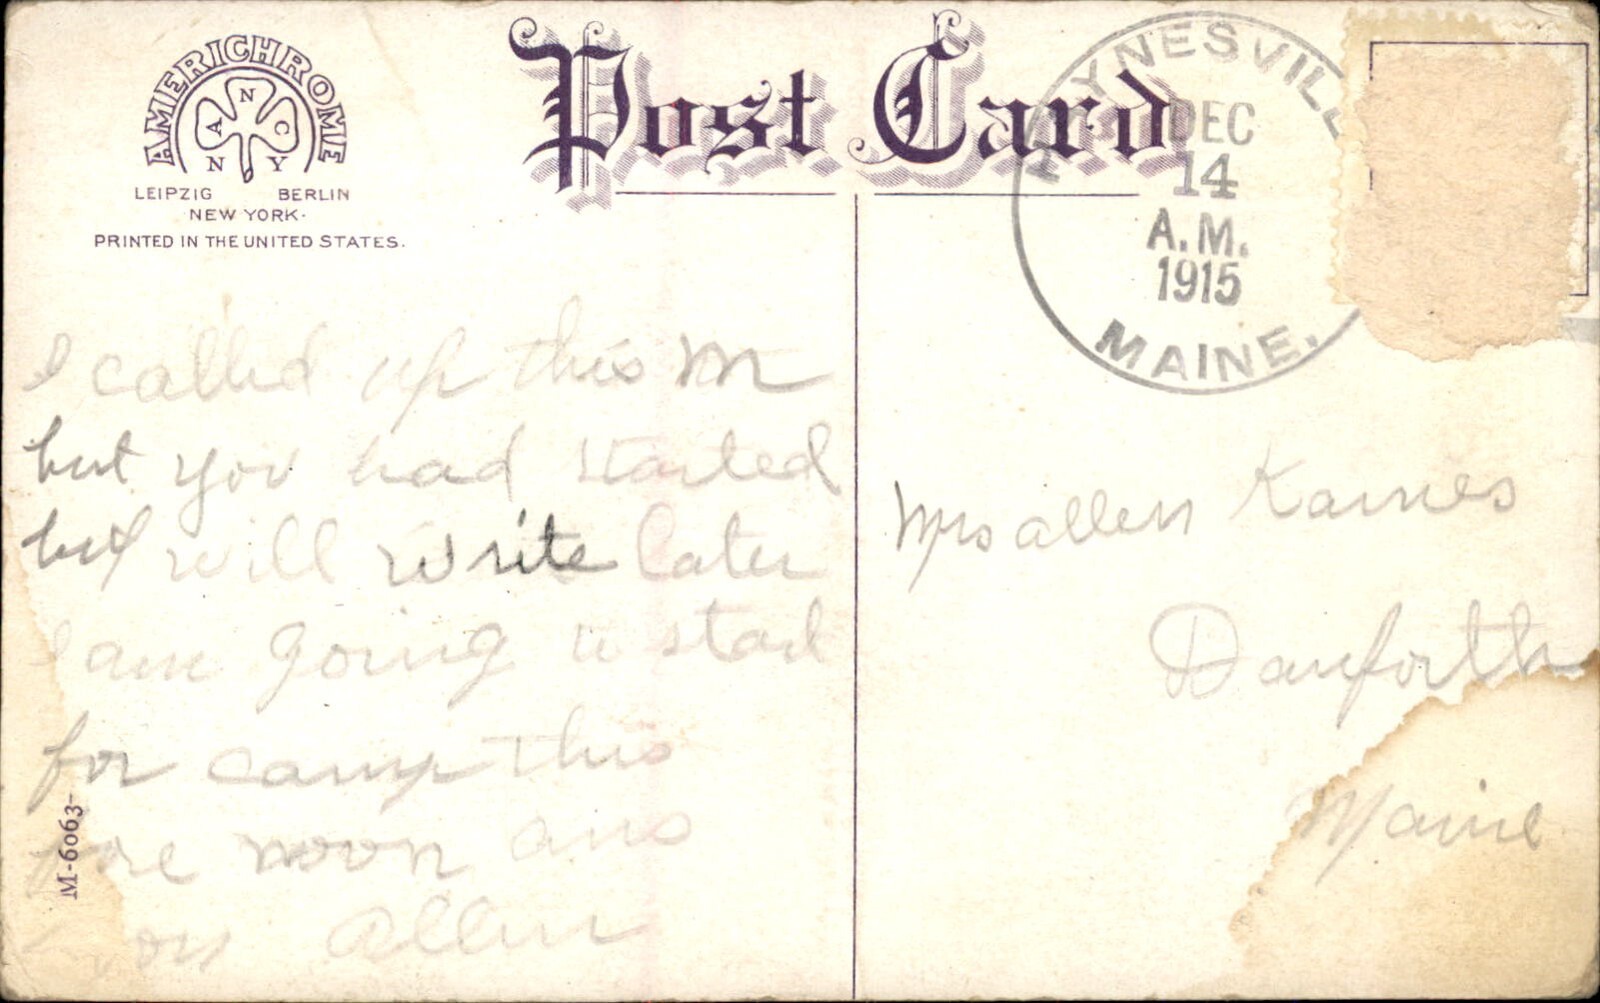 AMERICHROME
A N C
N Y
LEIPZIG BERLIN
NEW YORK.
PRINTED IN THE UNITED STATES.
Post Card
YNESVILL
DEC
14
A.M.
1915
MAINE.
I called up this M
but you had started
but will write later
I am going to start
for camp this
fore noon ans
Allen
M-6063
Mrs allen Karnes
Danforth
Maine